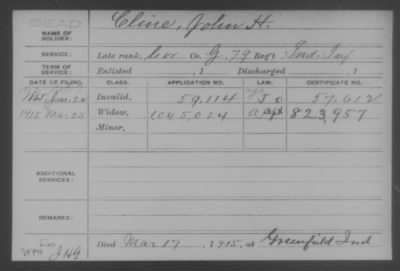 DEAD
Cline, John H.
NAME OF SOLDIER:
SERVICE: Late rank, Cor Co. G, 79 Reg't Ind. Inf
TERM OF SERVICE: Enlisted , 1 Discharged , 1
DATE OF FILING. CLASS. APPLICATION NO. LAW. CERTIFICATE NO.
1865 Jun. 20 Invalid, 59.114 57.612
1915 Mar 25 Widow, 1045.024 823,957
Minor,
ADDITIONAL SERVICES:
REMARKS:
Died Mar 17, 1915, at Greenfield Ind